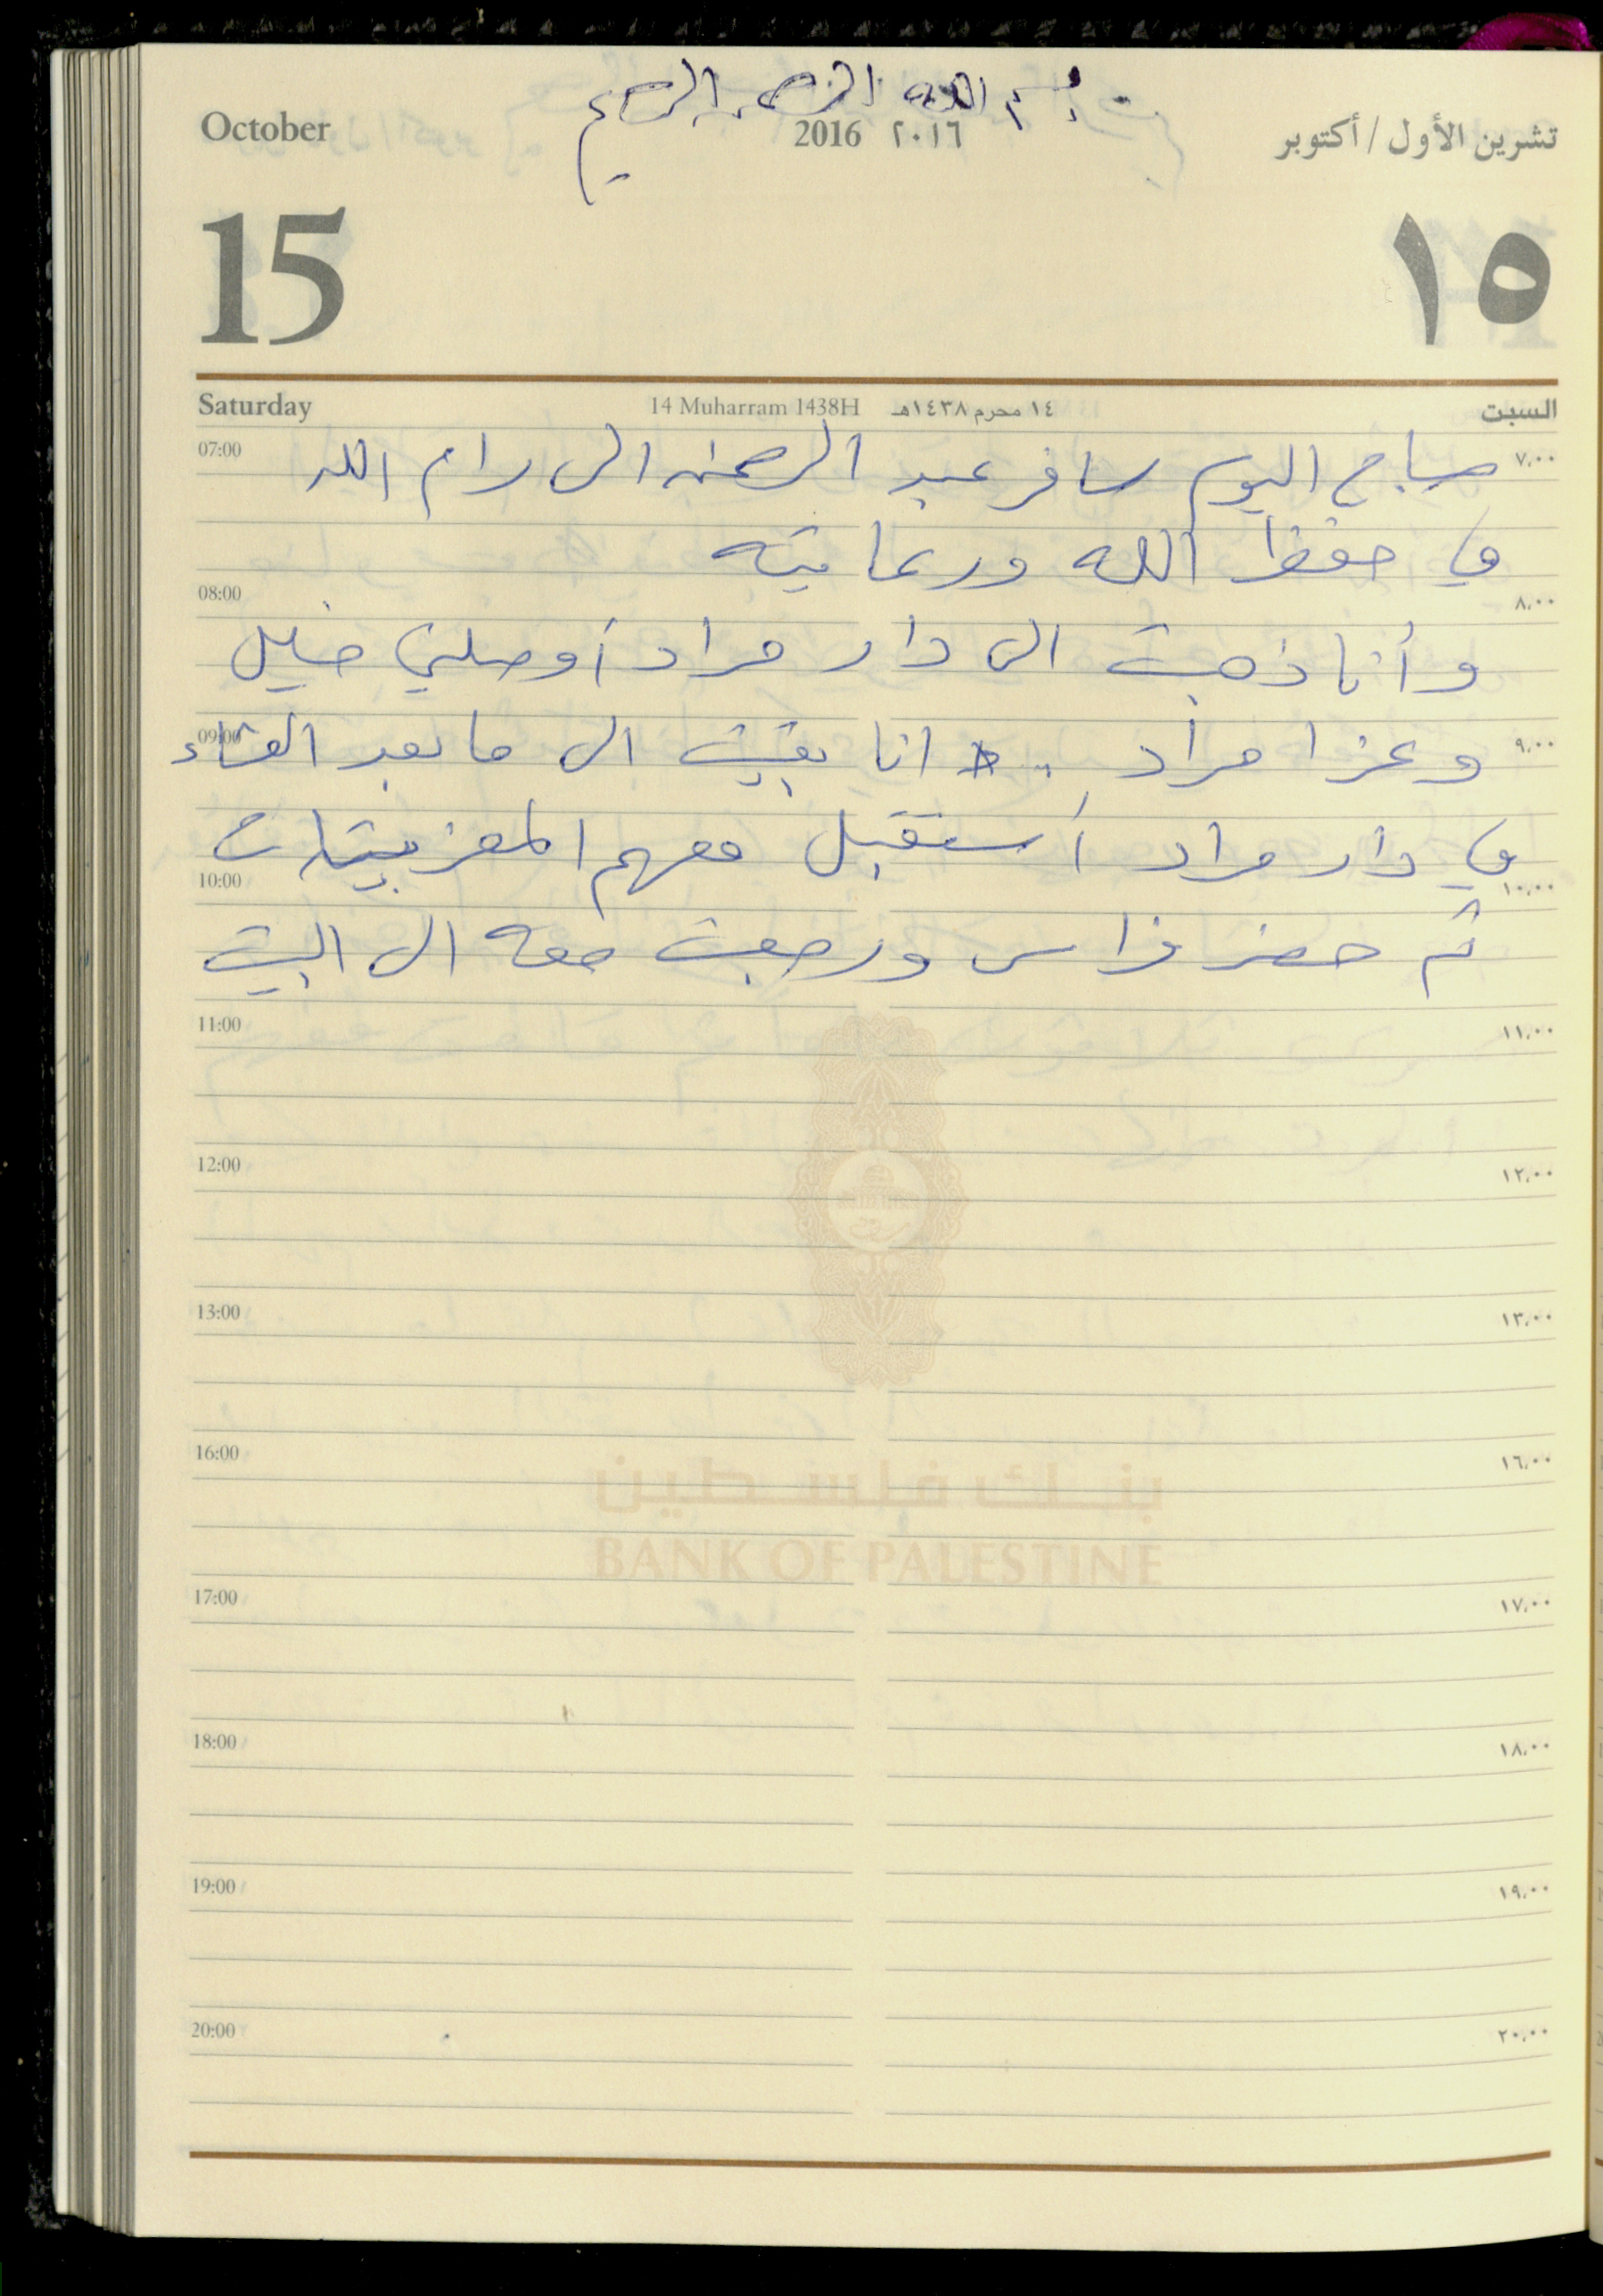 بسم الله الرحمن الرحيم
October 2016 ٢٠١٦ تشرين الأول / أكتوبر
15 ١٥
Saturday 14 Muharram 1438H ١٤ محرم ١٤٣٨هـ السبت
07:00 صباح اليوم سافر عبد الرحمن الى رام الله ٧,٠٠
في حفظ الله ورعايته
08:00 ٨,٠٠
وأنا ذهبت الى دار مراد أوصلني خليل
09:00 وعزا مراد .. انا بقيت الى ما بعد العشاء ٩,٠٠
في دار مراد أستقبل معهم المعزييات
10:00 ١٠,٠٠
ثم حضر فراس ورجعت معه الى البيت
11:00 ١١,٠٠
12:00 ١٢,٠٠
13:00 ١٣,٠٠
16:00 ١٦,٠٠
بنك فلسطين
BANK OF PALESTINE
17:00 ١٧,٠٠
18:00 ١٨,٠٠
19:00 ١٩,٠٠
20:00 ٢٠,٠٠